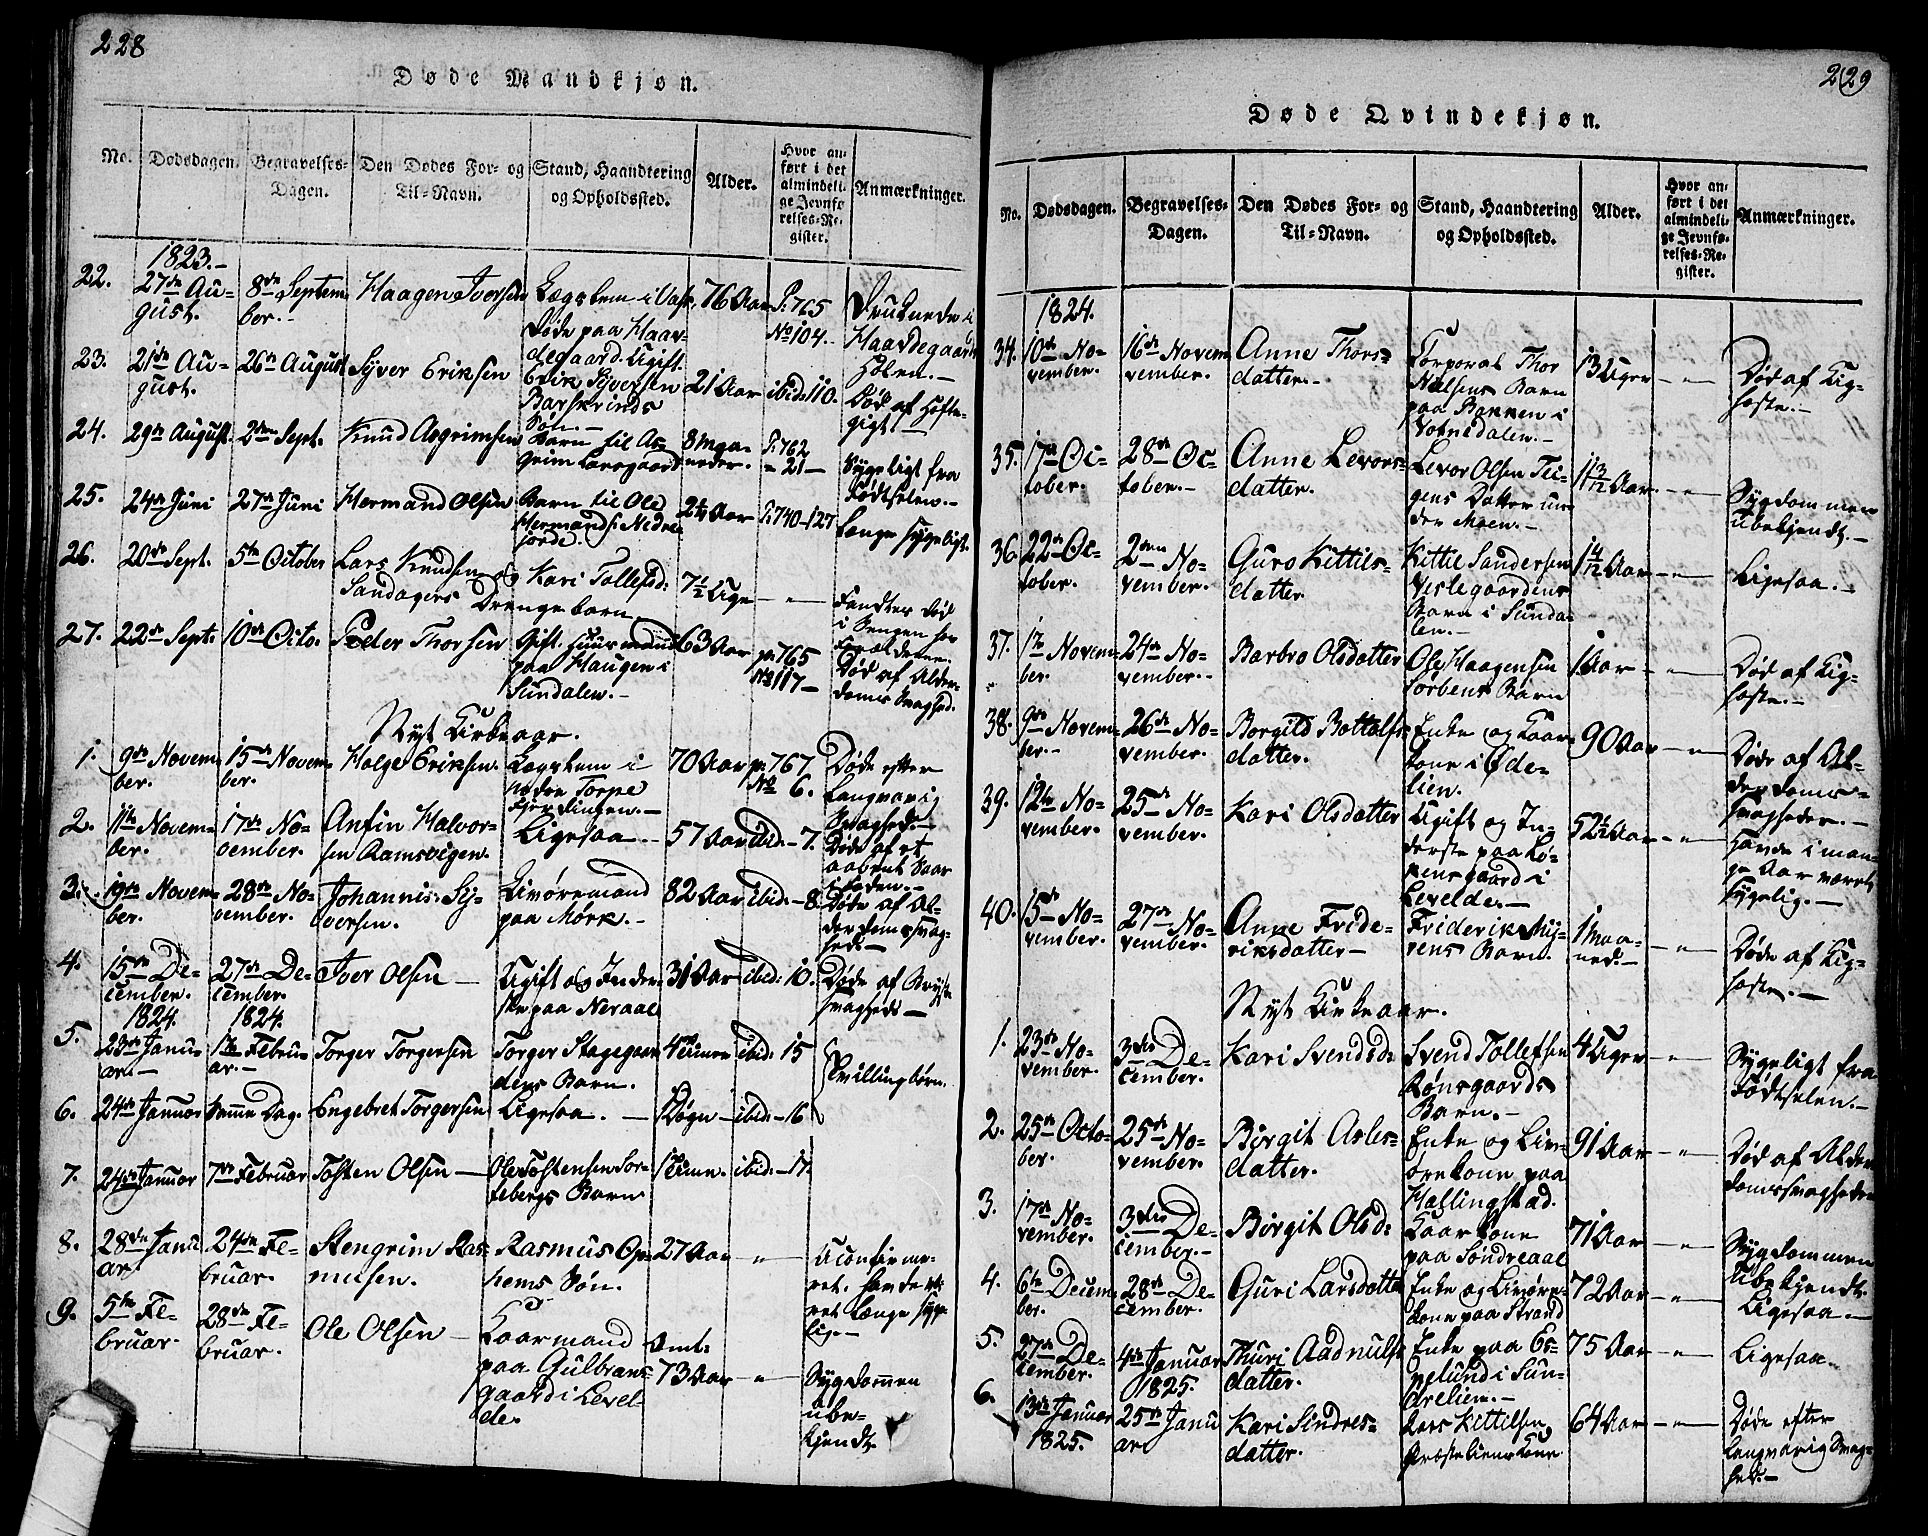 228
Døde Mandkjøn.
No. Dødsdagen. Begravelses-Dagen. Den Dødes For- og Til-Navn. Stand, Haandtering og Opholdssted. Alder. Hvor anført i det almindelige Jevnførelses-Register. Anmærkninger.
1823.
22. 27de August. 8de September. Haagen Iversen 76 Aar P. 765 No 104. Druknede i
døde paa Haardegaard.
23. 21de August. 26de August Syver Eriksen Ugift. Erik Syversen Søn. 21 Aar ibid: 110. Død af
24. 29de August. 2den Sept. Knud Asgrimsen Barn til Asgrim 8 Maaneder. P. 762 - 21 - Sygeligt fra Fødselen.
25. 24de Juni 27de Juni Hermand Olsen Barn til Ole Hermands: Nedre 2¼ Aar P. 740-127 Længe sygeligt.
26. 20de Sept. 5te October Lars Knudsen og Kari Tollefsd: Drengebarn 7½ Uge - " - Fandtes død i Sengen hos Forældrene.
27. 22de Sept: 10de Octo. Peder Thorsen Gift Huusmand paa Haugen i Sundalen. 63 Aar p. 765 No 117 - Død af Alderdoms Svaghed.
Nyt Kirkeaar.
1. 9de November. 15de November. Holge Eriksen. Lægslem i nedre Torpe Fjerdingen. 70 Aar p. 767 No 6. Døde efter langvarig Svaghed.
2. 11te November. 17de November. Anfin Halvorsen Ramsvigen. Ligesaa 57 Aar ibid. - 7. Døde af et aabent Saar i Foden.
3. 19de November. 28de November. Johannis Syversen. Livøremand paa Mørk. 82 Aar ibid. - 8. Døde af Alderdomssvaghed.
4. 15de December. 27de December. Iver Olsen Ugift og Inderste paa Neraal 31 Aar ibid: 10. Døde af Brystsvaghed
1824. 1824.
5. 23de Januar. 1ste Februar. Torger Torgersen Torger Barn. 4 Timer ibid: 15 Tvillingbørn.
6. 24de Januar Samme Dag. Engebret Torgersen Ligesaa. 1 Døgn ibid - 16
7. 24de Januar 7de Februar Tosten Olsen Ole Tostensen Barn 1 Time. ibid - 17.
8. 28de Januar 24de Februar. Stengrim Rasmusen. Rasmus Opheims Søn. 27 Aar " Uconfirmeret. Havde været længe sygelig.
9. 5te Februar. 28de Februar. Ole Olsen Kaarmand paa Gulbransgaard i Levelde. Omt. 73 Aar " Sygdommen ubekjendt.
229
Døde Qvindekjøn.
No. Dødsdagen. Begravelses-Dagen. Den Dødes For- og Til-Navn. Stand, Haandtering og Opholdssted. Alder. Hvor anført i det almindelige Jevnførelses-Register. Anmærkninger.
1824.
34. 10de November. 16de November. Anne Thorsdatter. Corporal Thor Nielsens Barn paa Bakken i Votnedalen. 13 Uger - " - Død af Kighoste.
35. 17de October. 28de October. Anne Levorsdatter. Levor Olsen Teigens Datter under Moen. 11 3/12 Aar. - " - Sygdommen ubekjendt.
36. 22de October. 2den November. Guro Kittilsdatter Kittil Sandersen Veslegaardens Barn i Sundalen. 1 4/12 Aar - " - Ligesaa.
37. 17 November. 24de November. Barbro Olsdatter Ole Haagensen Sørbens Barn 1 Aar - " - Død af Kighoste.
38. 9de November. 26de November. Borgild Bottolfsdatter. Enke og Kaarkone i Ødelien. 90 Aar - " - Døde af Alderdomssvagheder.
39. 12te November. 25de November. Kari Olsdatter Ugift og Inderste paa i Levelde. 52½ Aar - " - Havde i mange Aar været sygelig.
40. 15de November. 27de November. Anne Frideriksdatter Friderik Myrens Barn. 1 Maaned. - " - Døde af Kighoste.
Nyt Kirkeaar.
1. 23de November. 3die December. Kari Svendsd: Svend Tollefsen Rønsgaards Barn. 4 Uger - " - Sygeligt fra Fødselen.
2. 25de October. 25de November. Birgit Aslesdatter. Enke og Livørekone paa Hallingstad. 91 Aar - " - Død af Alderdomssvagheder
3. 17de November. 3die December. Birgit Olsd: Kaarkone paa Søndreaal 71 Aar - " - Sygdommen ubekjendt.
4. 6te December. 28de December. Guri Larsdatter Enke og Livørekone paa Strand 72 Aar - " - Ligesaa.
5. 27de December. 4de Januar 1825. Thuri Aadnulfsdatter. Enke paa Espelund i Sundrelien. 75 Aar - " - Ligesaa.
6. 13de Januar 1825. 25de Januar Kari Sindresdatter. Lars Kittilsen Præsteliens Kone 64 Aar - " - Døde efter langvarig Svaghed.